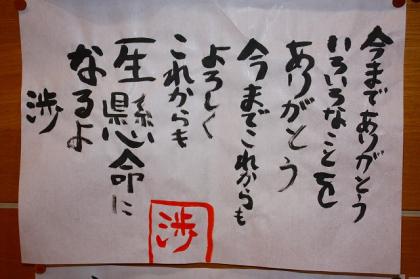 今までありがとう
いろいろなことを
ありがとう
今までこれからも
よろしく
これからも
一生懸命に
なるよ
渉
渉